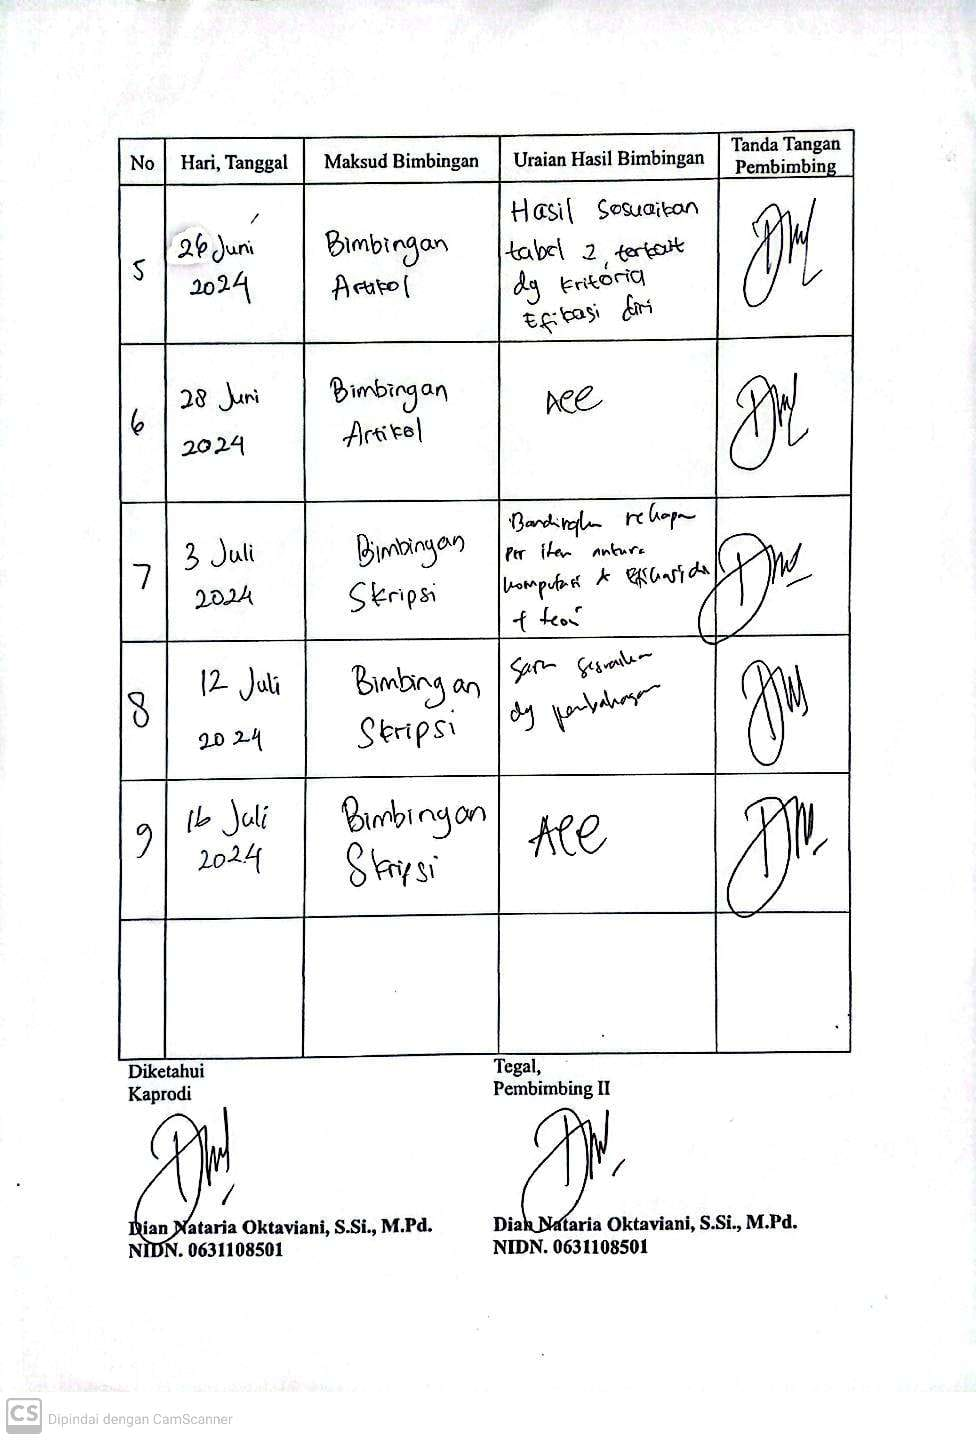 No Hari, Tanggal Maksud Bimbingan Uraian Hasil Bimbingan Tanda Tangan Pembimbing
5
26 Juni
2024
Bimbingan
Artikel
Hasil Sesuaikan
tabel 2, terkait
dg kriteria
Efikasi diri
6
28 Juni
2024
Bimbingan
Artikel
Acc
7
3 Juli
2024
Bimbingan
Skripsi
per item antara
komputasi
+ teori
8
12 Juli
2024
Bimbingan
Skripsi
Saran sesuaikan
dg pembahasan
9
16 Juli
2024
Bimbingan
Skripsi
Acc
Diketahui
Kaprodi
Dian Nataria Oktaviani, S.Si., M.Pd.
NIDN. 0631108501
Tegal,
Pembimbing II
Dian Nataria Oktaviani, S.Si., M.Pd.
NIDN. 0631108501
CS Dipindai dengan CamScanner